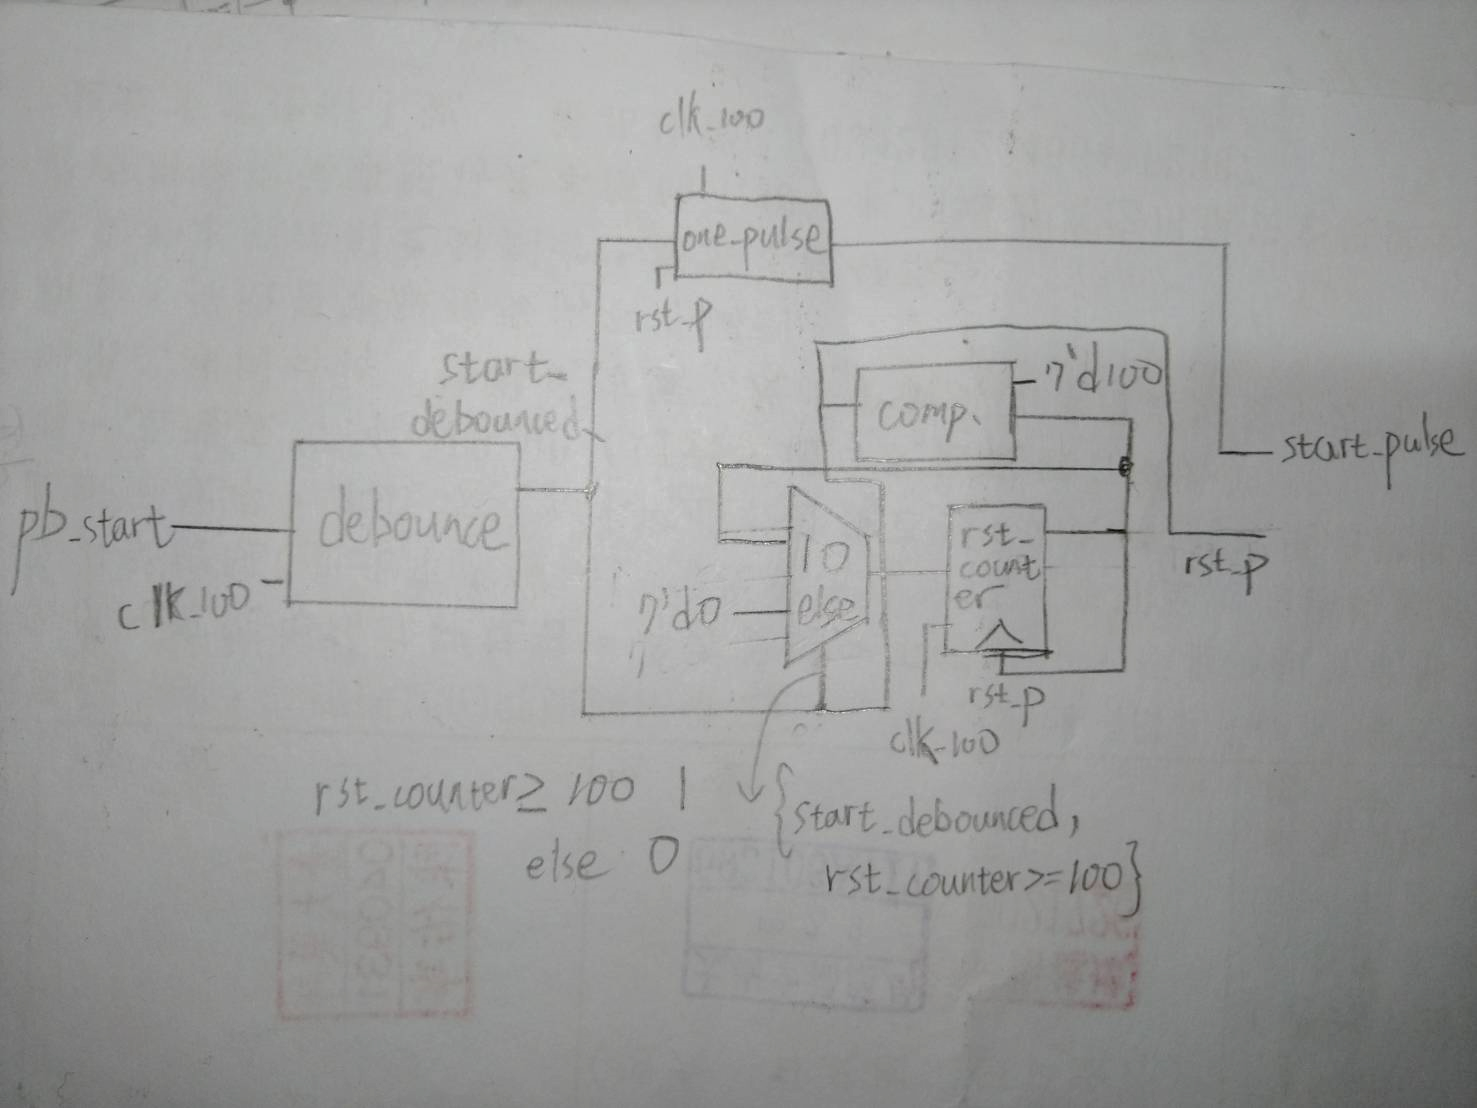 clk_100
one_pulse
rst_p
start_
debounced
7'd100
comp.
start_pulse
pb_start
debounce
clk_100
10
else
7'd0
rst_
count
er
rst_p
rst_p
clk_100
rst_counter≥ 100 1
else 0
{start_debounced,
rst_counter>=100}